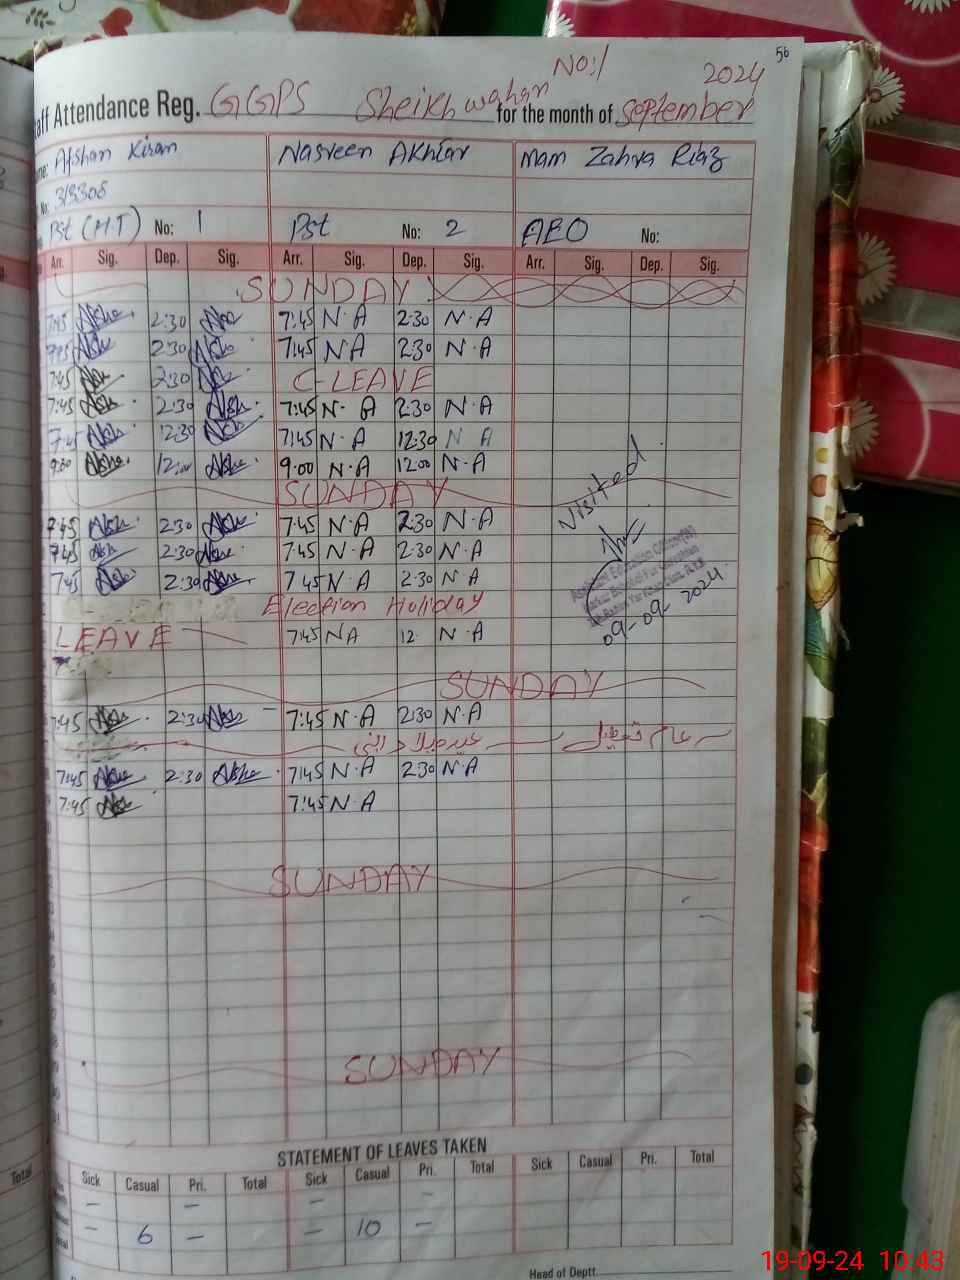 56
No:1 2024
aff Attendance Reg. GGPS Sheikh wahan for the month of September
me: Afshan Kiran Nasreen Akhtar Mam Zahra Riaz
No:
Pst (H.T) No: 1 Pst No: 2 AEO No:
Arr. Sig. Dep. Sig. Arr. Sig. Dep. Sig. Arr. Sig. Dep. Sig.
SUNDAY
7:45 2:30 7:45 N.A 2:30 N.A
7:45 2:30 7:45 NA 2:30 N.A
7:45 2:30 C-LEAVE
7:45 2:30 7:45 N.A 2:30 N.A
7:45 12:30 7:45 N.A 12:30 N A
9:00 12:00 9:00 N.A 12:00 N.A
SUNDAY
Visited
7:45 2:30 7:45 N.A 2:30 N.A
7:45 2:30 7:45 N.A 2:30 N.A
7:45 2:30 7:45 N.A 2:30 N.A
09-09-2024
Election Holiday
LEAVE 7:45 NA 12 N.A
SUNDAY
7:45 2:30 7:45 N.A 2:30 N.A
عام تعطیل عید میلاد النبی
7:45 2:30 7:45 N.A 2:30 N.A
7:45 7:45 N.A
SUNDAY
SUNDAY
STATEMENT OF LEAVES TAKEN
Total Sick Casual Pri. Total Sick Casual Pri. Total Sick Casual Pri. Total
– – – –
– 6 – – 10 –
Head of Deptt.
19-09-24 10:43